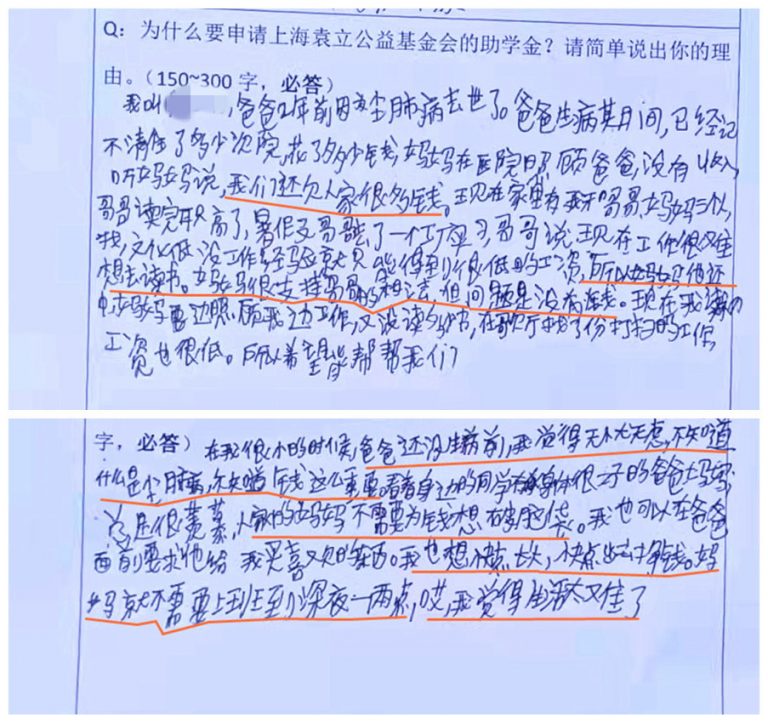 Q：为什么要申请上海袁立公益基金会的助学金？请简单说出你的理
由。（150~300字，必答）
我叫 ，爸爸2年前因为尘肺病去世了。爸爸生病其间，已经记
不清住了多少次院，花了多少钱，妈妈在医院照顾爸爸，没有收入，
听妈妈说，我们还欠人家很多钱。现在家里有我和哥哥、妈妈三个，
哥哥读完职高了，暑假 哥哥 了一个工厂 哥哥说，现在工作很难
找，文化低没工作经验就只能得到很低的工资，所以 他还
想去读书。妈妈很支持哥哥的想法，但问题是没有钱。现在我读初
中妈妈要边照顾我边工作，又没读多少书，在歌厅找了份打扫的工作，
工资也很低。所以希望能帮帮我们
字，必答） 在我很小的时候，爸爸还没生病前，我觉得无忧无虑，不知道
什么是尘肺病，不知道钱这么重要。看着身边的同学有身体很好的爸爸妈妈，
总是很羡慕，人家的妈妈不需要为钱想破脑袋。我也可以在爸爸
面前要求他给我买喜欢的东西。我也想快点长大，快点出去挣钱。妈
妈就不需要上班到深夜一两点，哎，我觉得生活太难了